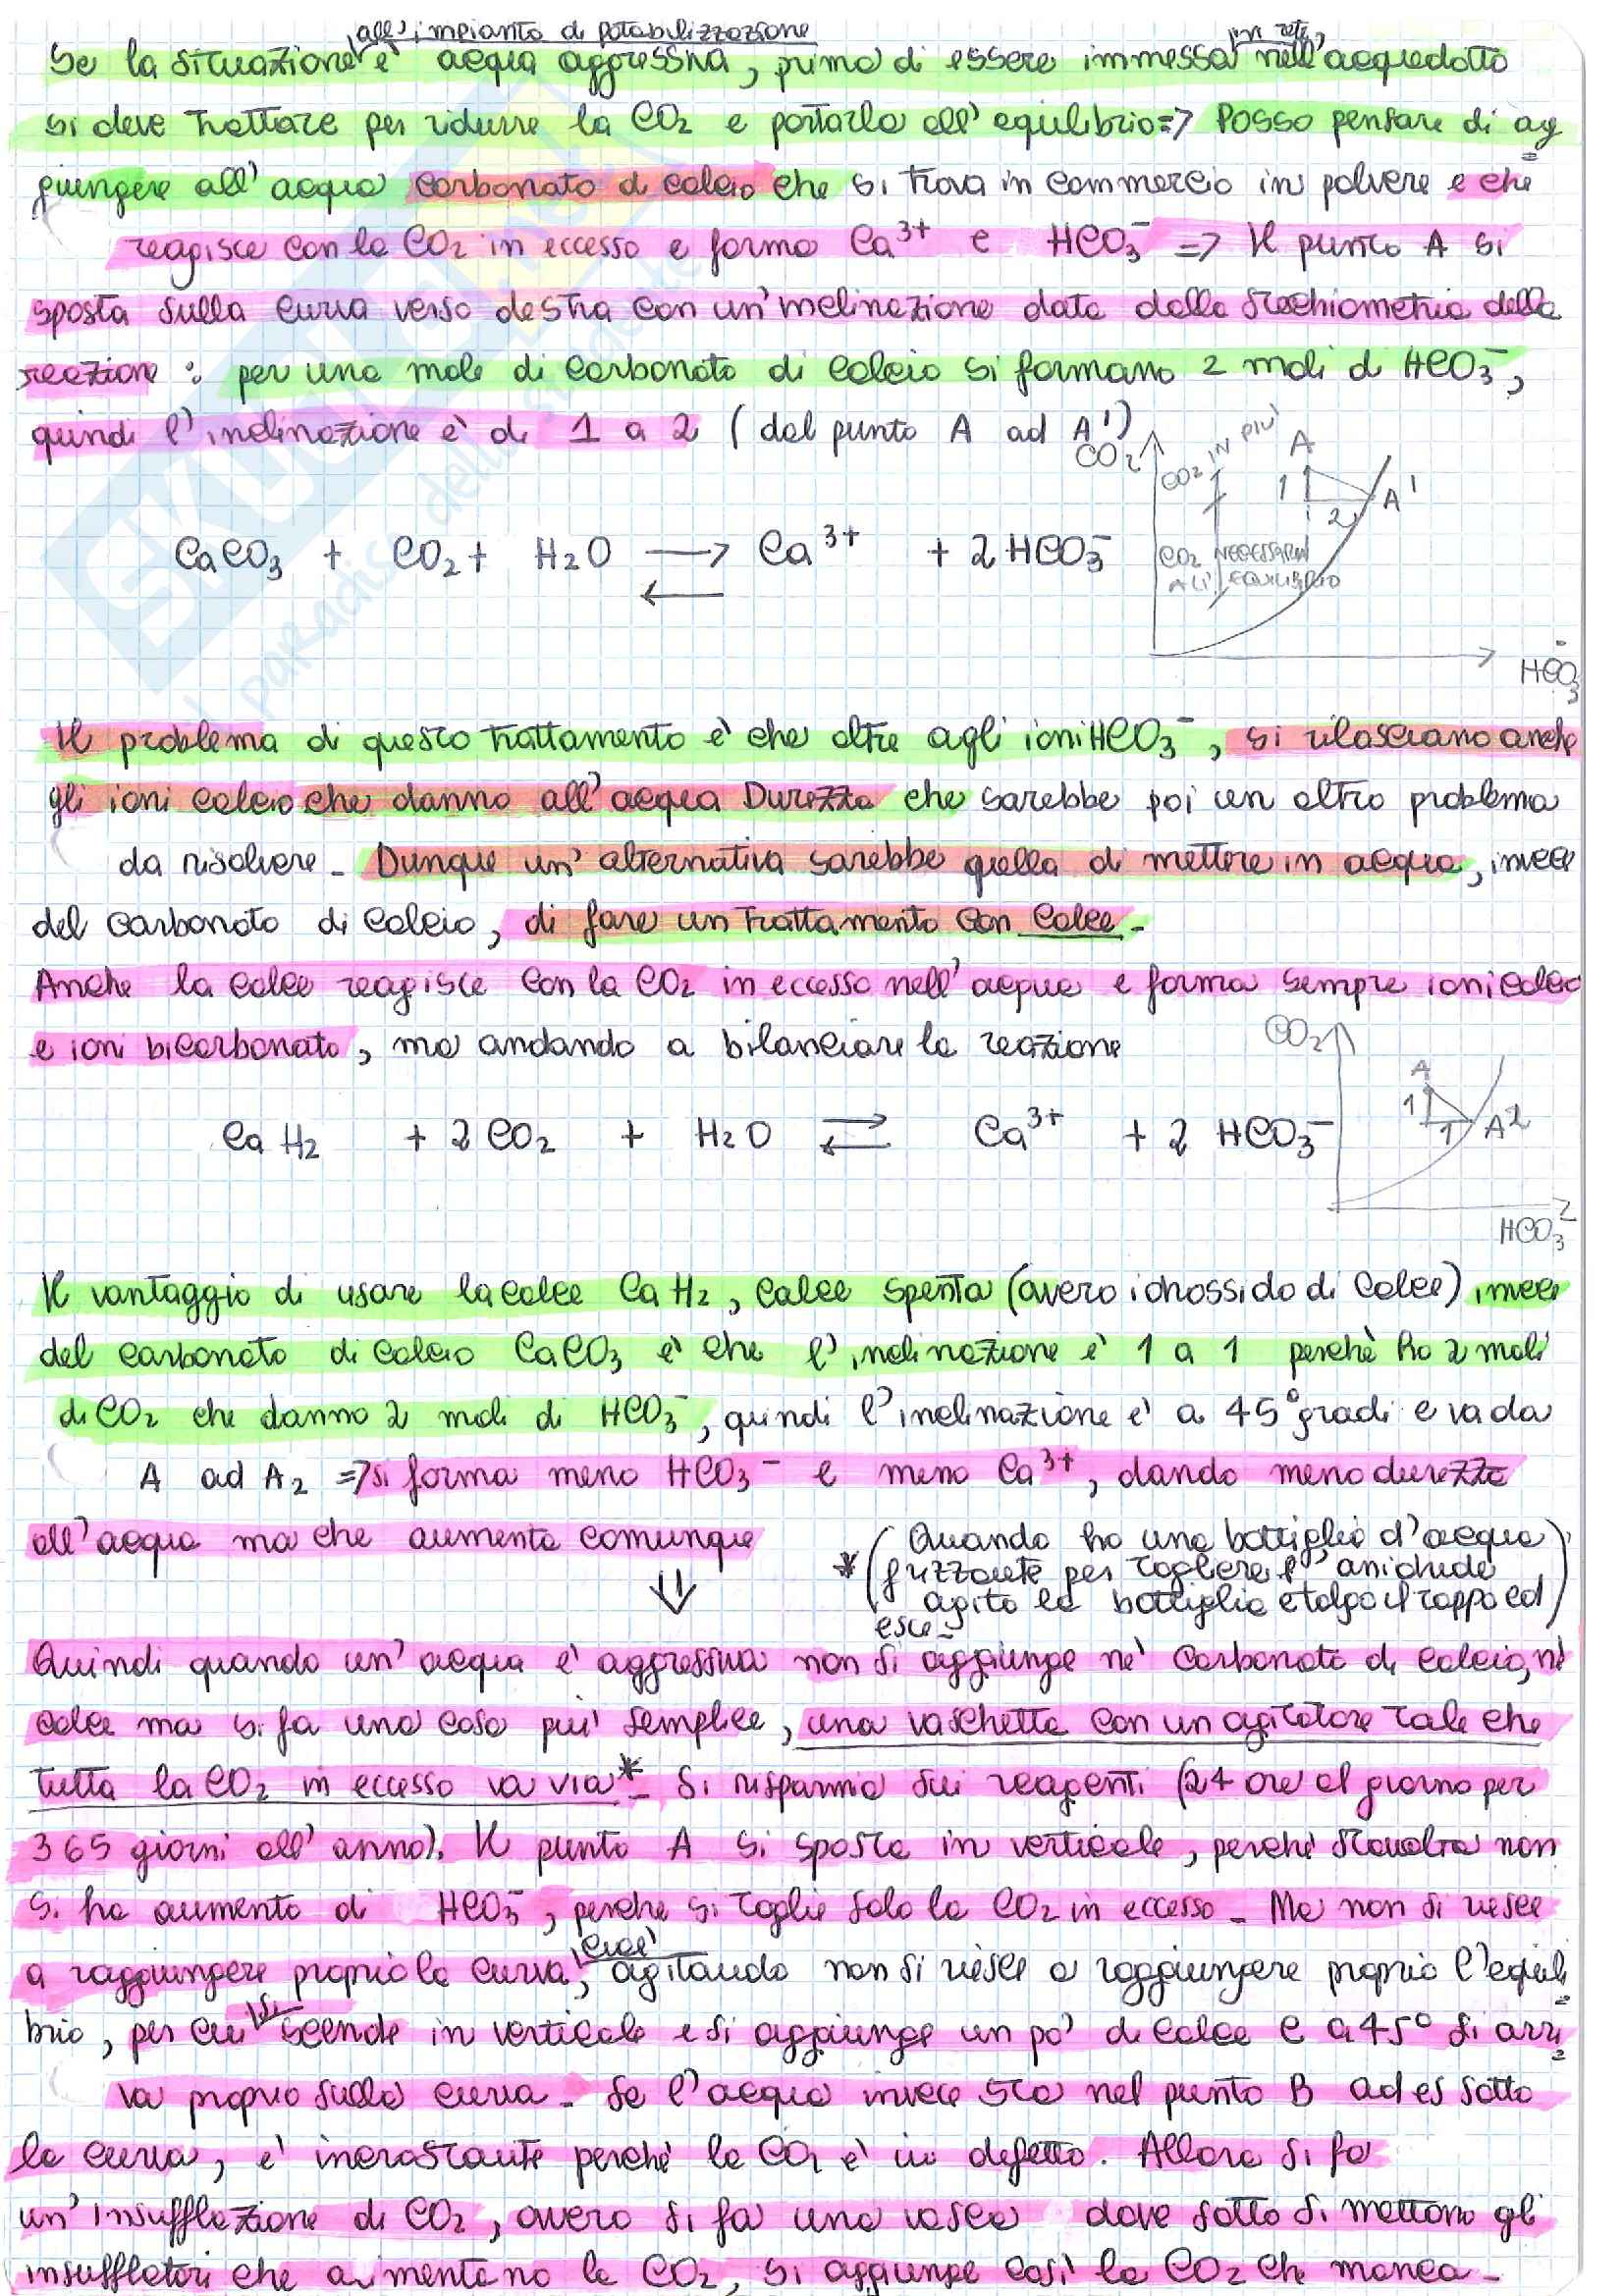 all'impianto di potabilizzazione
in rete,
Se la situazione è acqua aggressiva, prima di essere immessa nell'acquedotto
si deve trattare per ridurre la CO2 e portarla all'equilibrio => Posso pensare di ag
giungere all'acqua carbonato di calcio che si trova in commercio in polvere e che
reagisce con la CO2 in eccesso e forma Ca3+ e HCO3- => Il punto A si
sposta sulla curva verso destra con un'inclinazione data dalla stechiometria della
reazione: per una mole di carbonato di calcio si formano 2 moli di HCO3-,
quindi l'inclinazione è di 1 a 2 (dal punto A ad A')
CO2
CO2 IN PIÙ
A
1
2
A'
CO2 NECESSARIA
ALL'EQUILIBRIO
HCO3-
CaCO3 + CO2 + H2O ⇄ Ca3+ + 2 HCO3-
Il problema di questo trattamento è che oltre agli ioni HCO3-, si rilasciano anche
gli ioni calcio che danno all'acqua Durezza che sarebbe poi un altro problema
da risolvere - Dunque un'alternativa sarebbe quella di mettere in acqua, invece
del carbonato di calcio, di fare un trattamento con calce -
Anche la calce reagisce con la CO2 in eccesso nell'acqua e forma sempre ioni calcio
e ioni bicarbonato, ma andando a bilanciare la reazione
CO2
A
1
1
A2
HCO3-
CaH2 + 2CO2 + H2O ⇄ Ca3+ + 2 HCO3-
Il vantaggio di usare la calce CaH2, calce spenta (avero idrossido di calce) invece
del carbonato di calcio CaCO3 è che l'inclinazione è 1 a 1 perchè ho 2 moli
di CO2 che danno 2 moli di HCO3-, quindi l'inclinazione è a 45° gradi e va da
A ad A2 => si forma meno HCO3- e meno Ca3+, dando meno durezza
all'acqua ma che aumenta comunque
* (Quando ho una bottiglia d'acqua
frizzante per togliere l'anidride
agito la bottiglia e tolgo il tappo ed
esce -)
Quindi quando un'acqua è aggressiva non si aggiunge nè carbonato di calcio, nè
calce ma si fa una cosa più semplice, una vaschetta con un agitatore tale che
tutta la CO2 in eccesso va via* - Si risparmia sui reagenti (24 ore al giorno per
365 giorni all'anno). Il punto A si sposta in verticale, perchè stavolta non
si ha aumento di HCO3-, perchè si toglie solo la CO2 in eccesso - Ma non si riesce
cioè
a raggiungere proprio la curva, agitando non si riesce a raggiungere proprio l'equili
brio, per cui si scende in verticale e si aggiunge un po' di calce e a 45° si arri
va proprio sulla curva - Se l'acqua invece sta nel punto B ad es sotto
la curva, è incrostante perchè la CO2 è in difetto. Allora si fa
un'insufflazione di CO2, avero si fa una vasca dove sotto si mettono gli
insufflatori che aumentano la CO2, si aggiunge così la CO2 che manca -